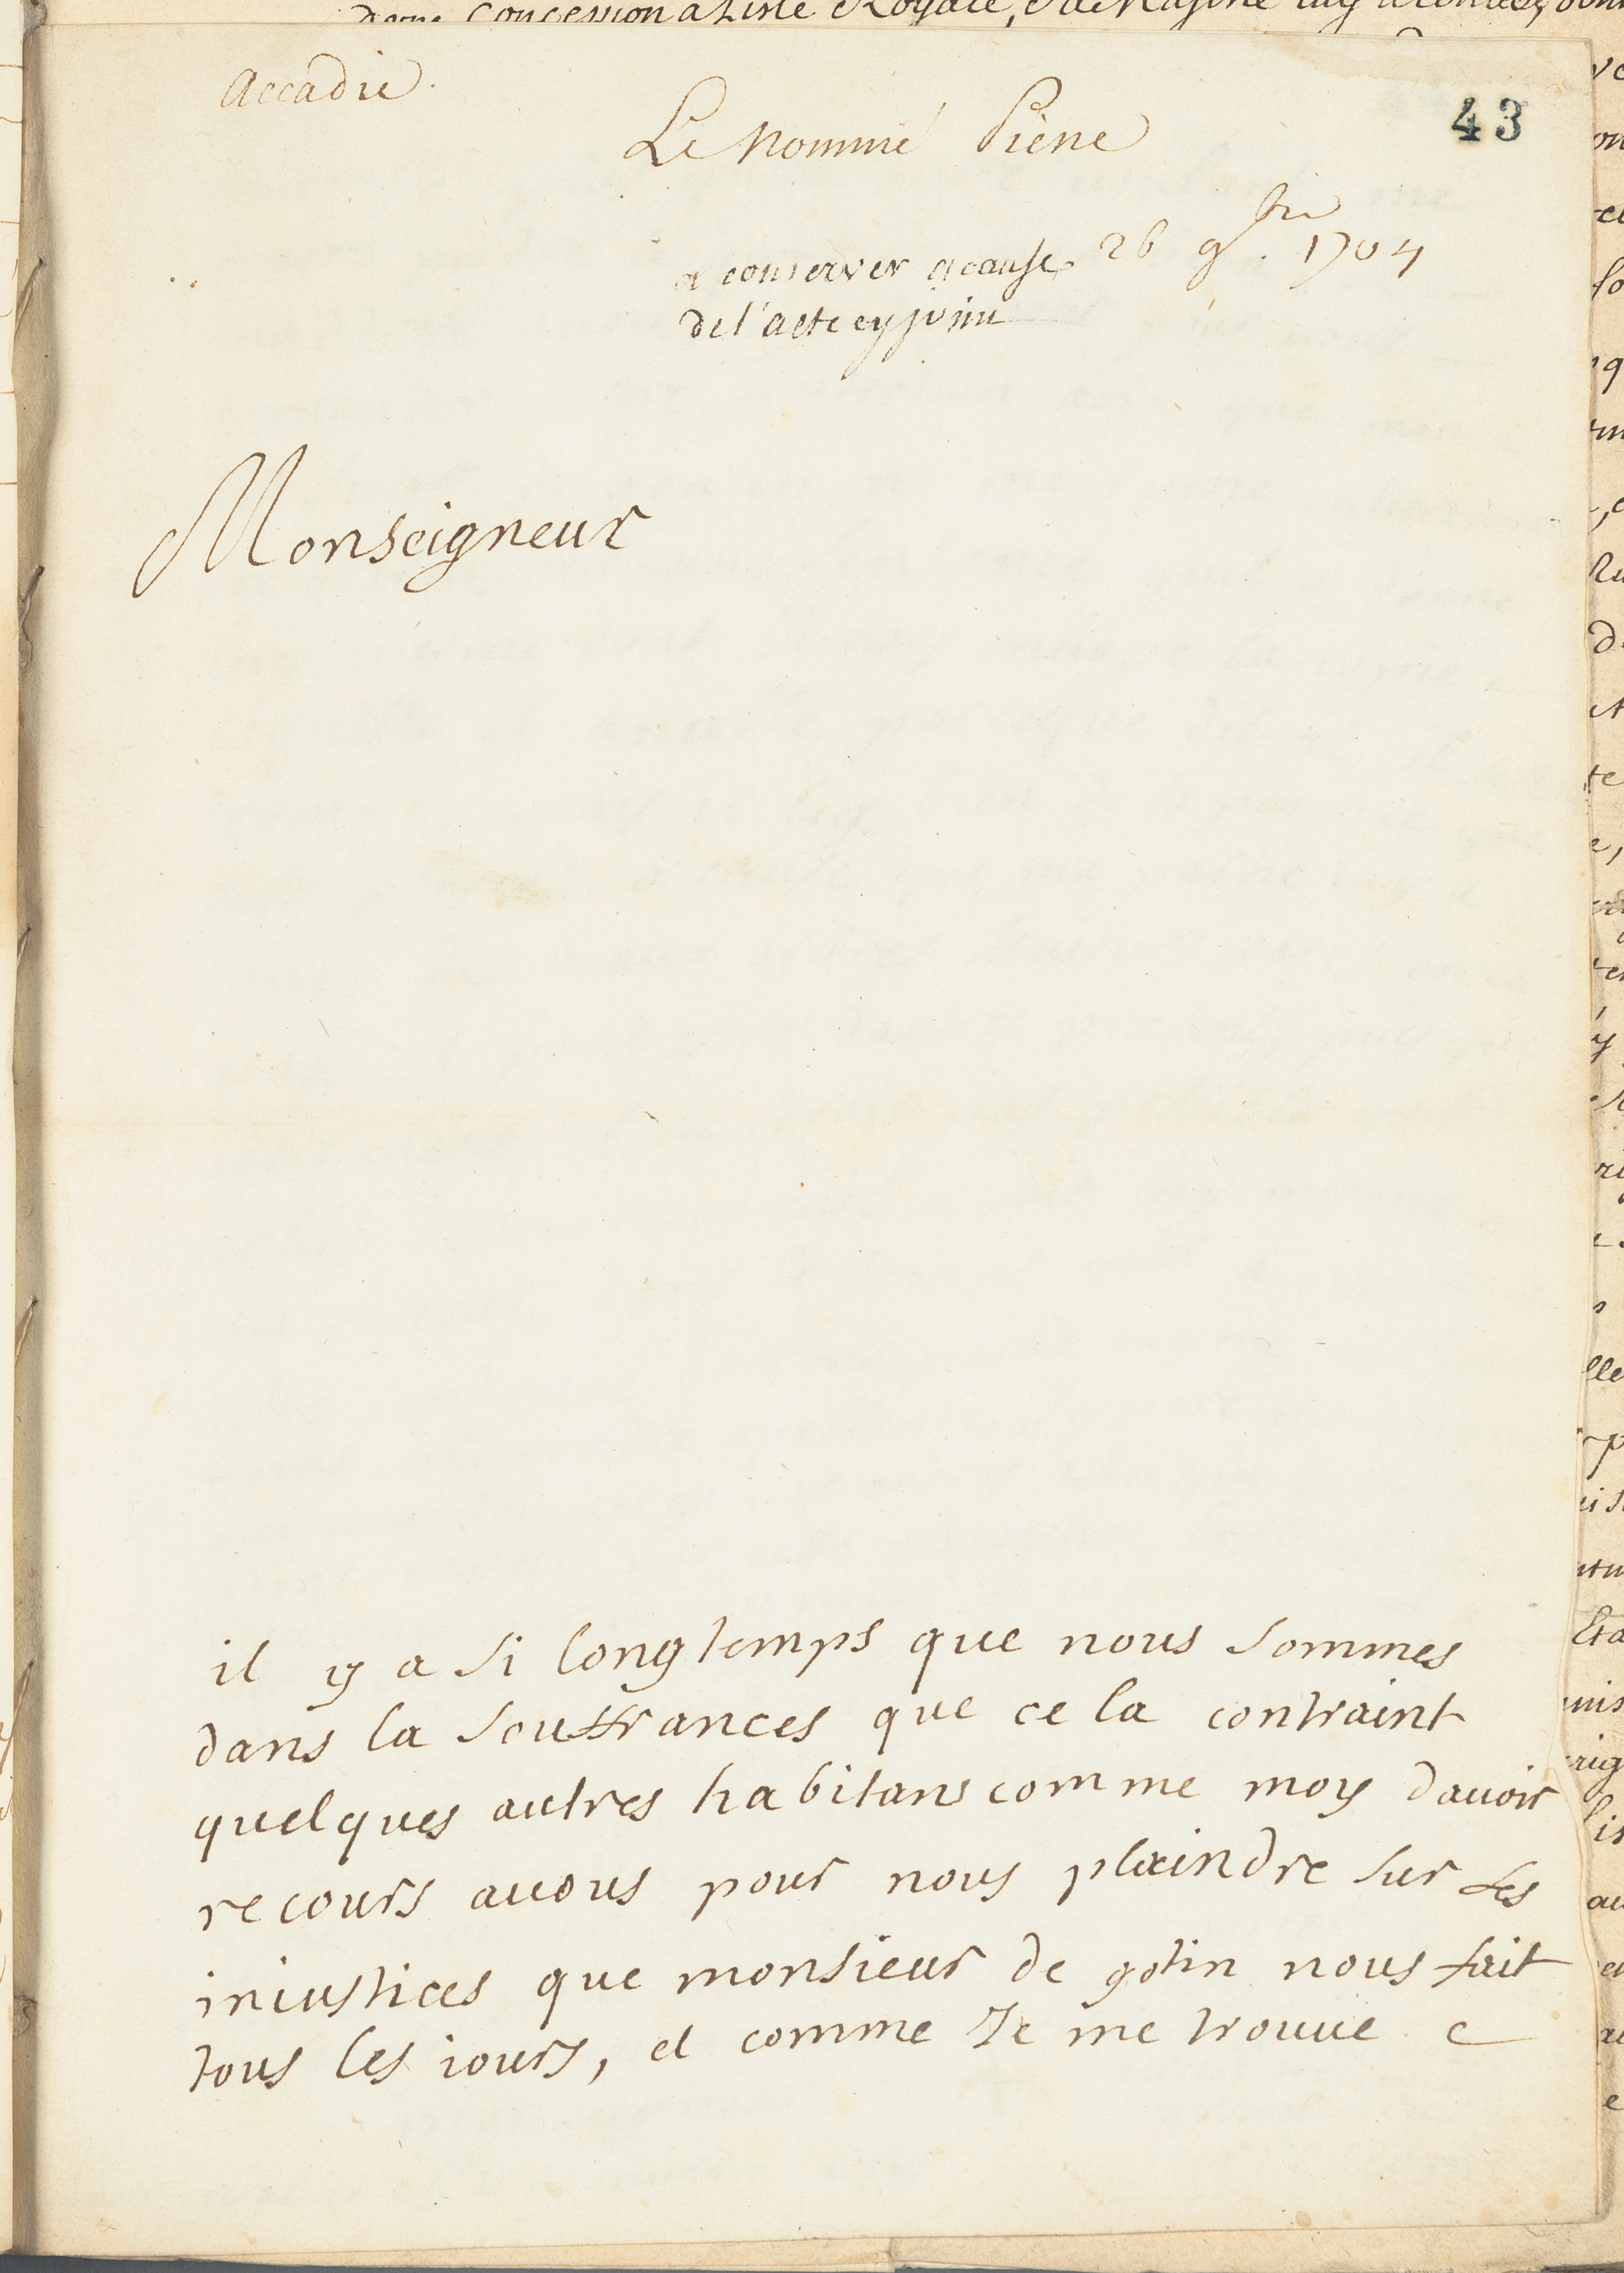 Accadie.
43
Le nommé Piène
26 9bre. 1704
a conserver acause
de l'acte cy joint
Monseigneur
il y a si longtemps que nous sommes
dans la souffrances que ce la contraint
quelques autres habitans comme moy dauoir
recours auous pour nous plaindre sur les
iniustices que monsieur de gotin nous fait
tous les iours, et comme Je me trouue